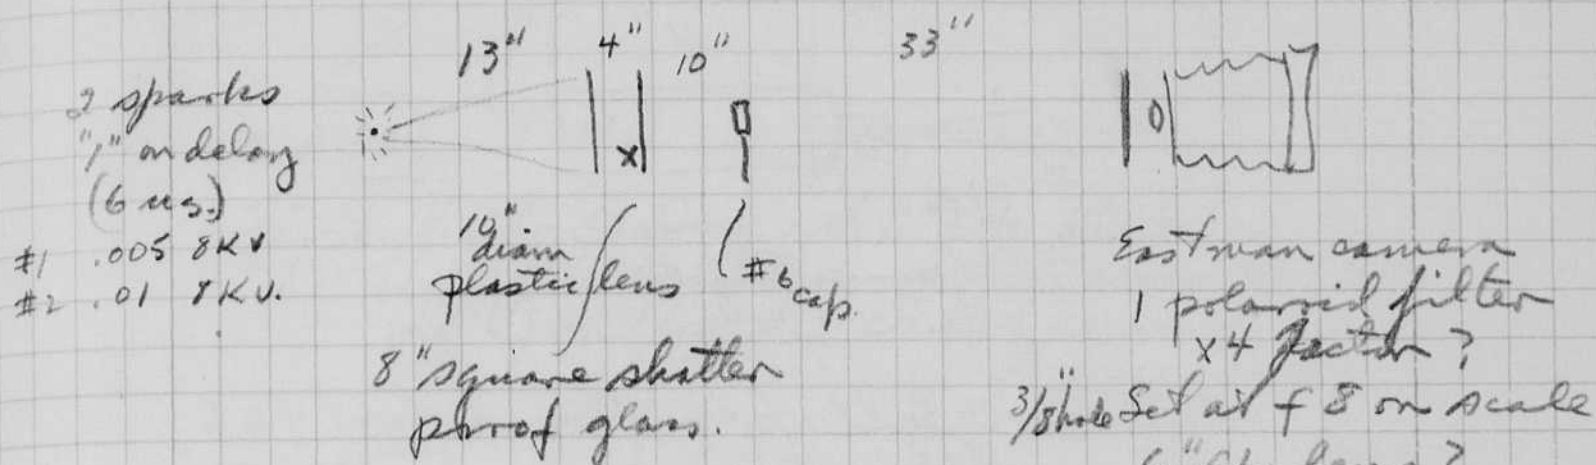 13" 4" 10" 33"
2 sparks
"1" on delay
(6 us.)
#1 .005 8KV
#2 .01 8KV.
x
10"
diam
plastic lens
#6 cap.
8" square shatter
proof glass.
Eastman camera
1 polaroid filter
x4 factor?
3/8" hole Set at f 8 on scale